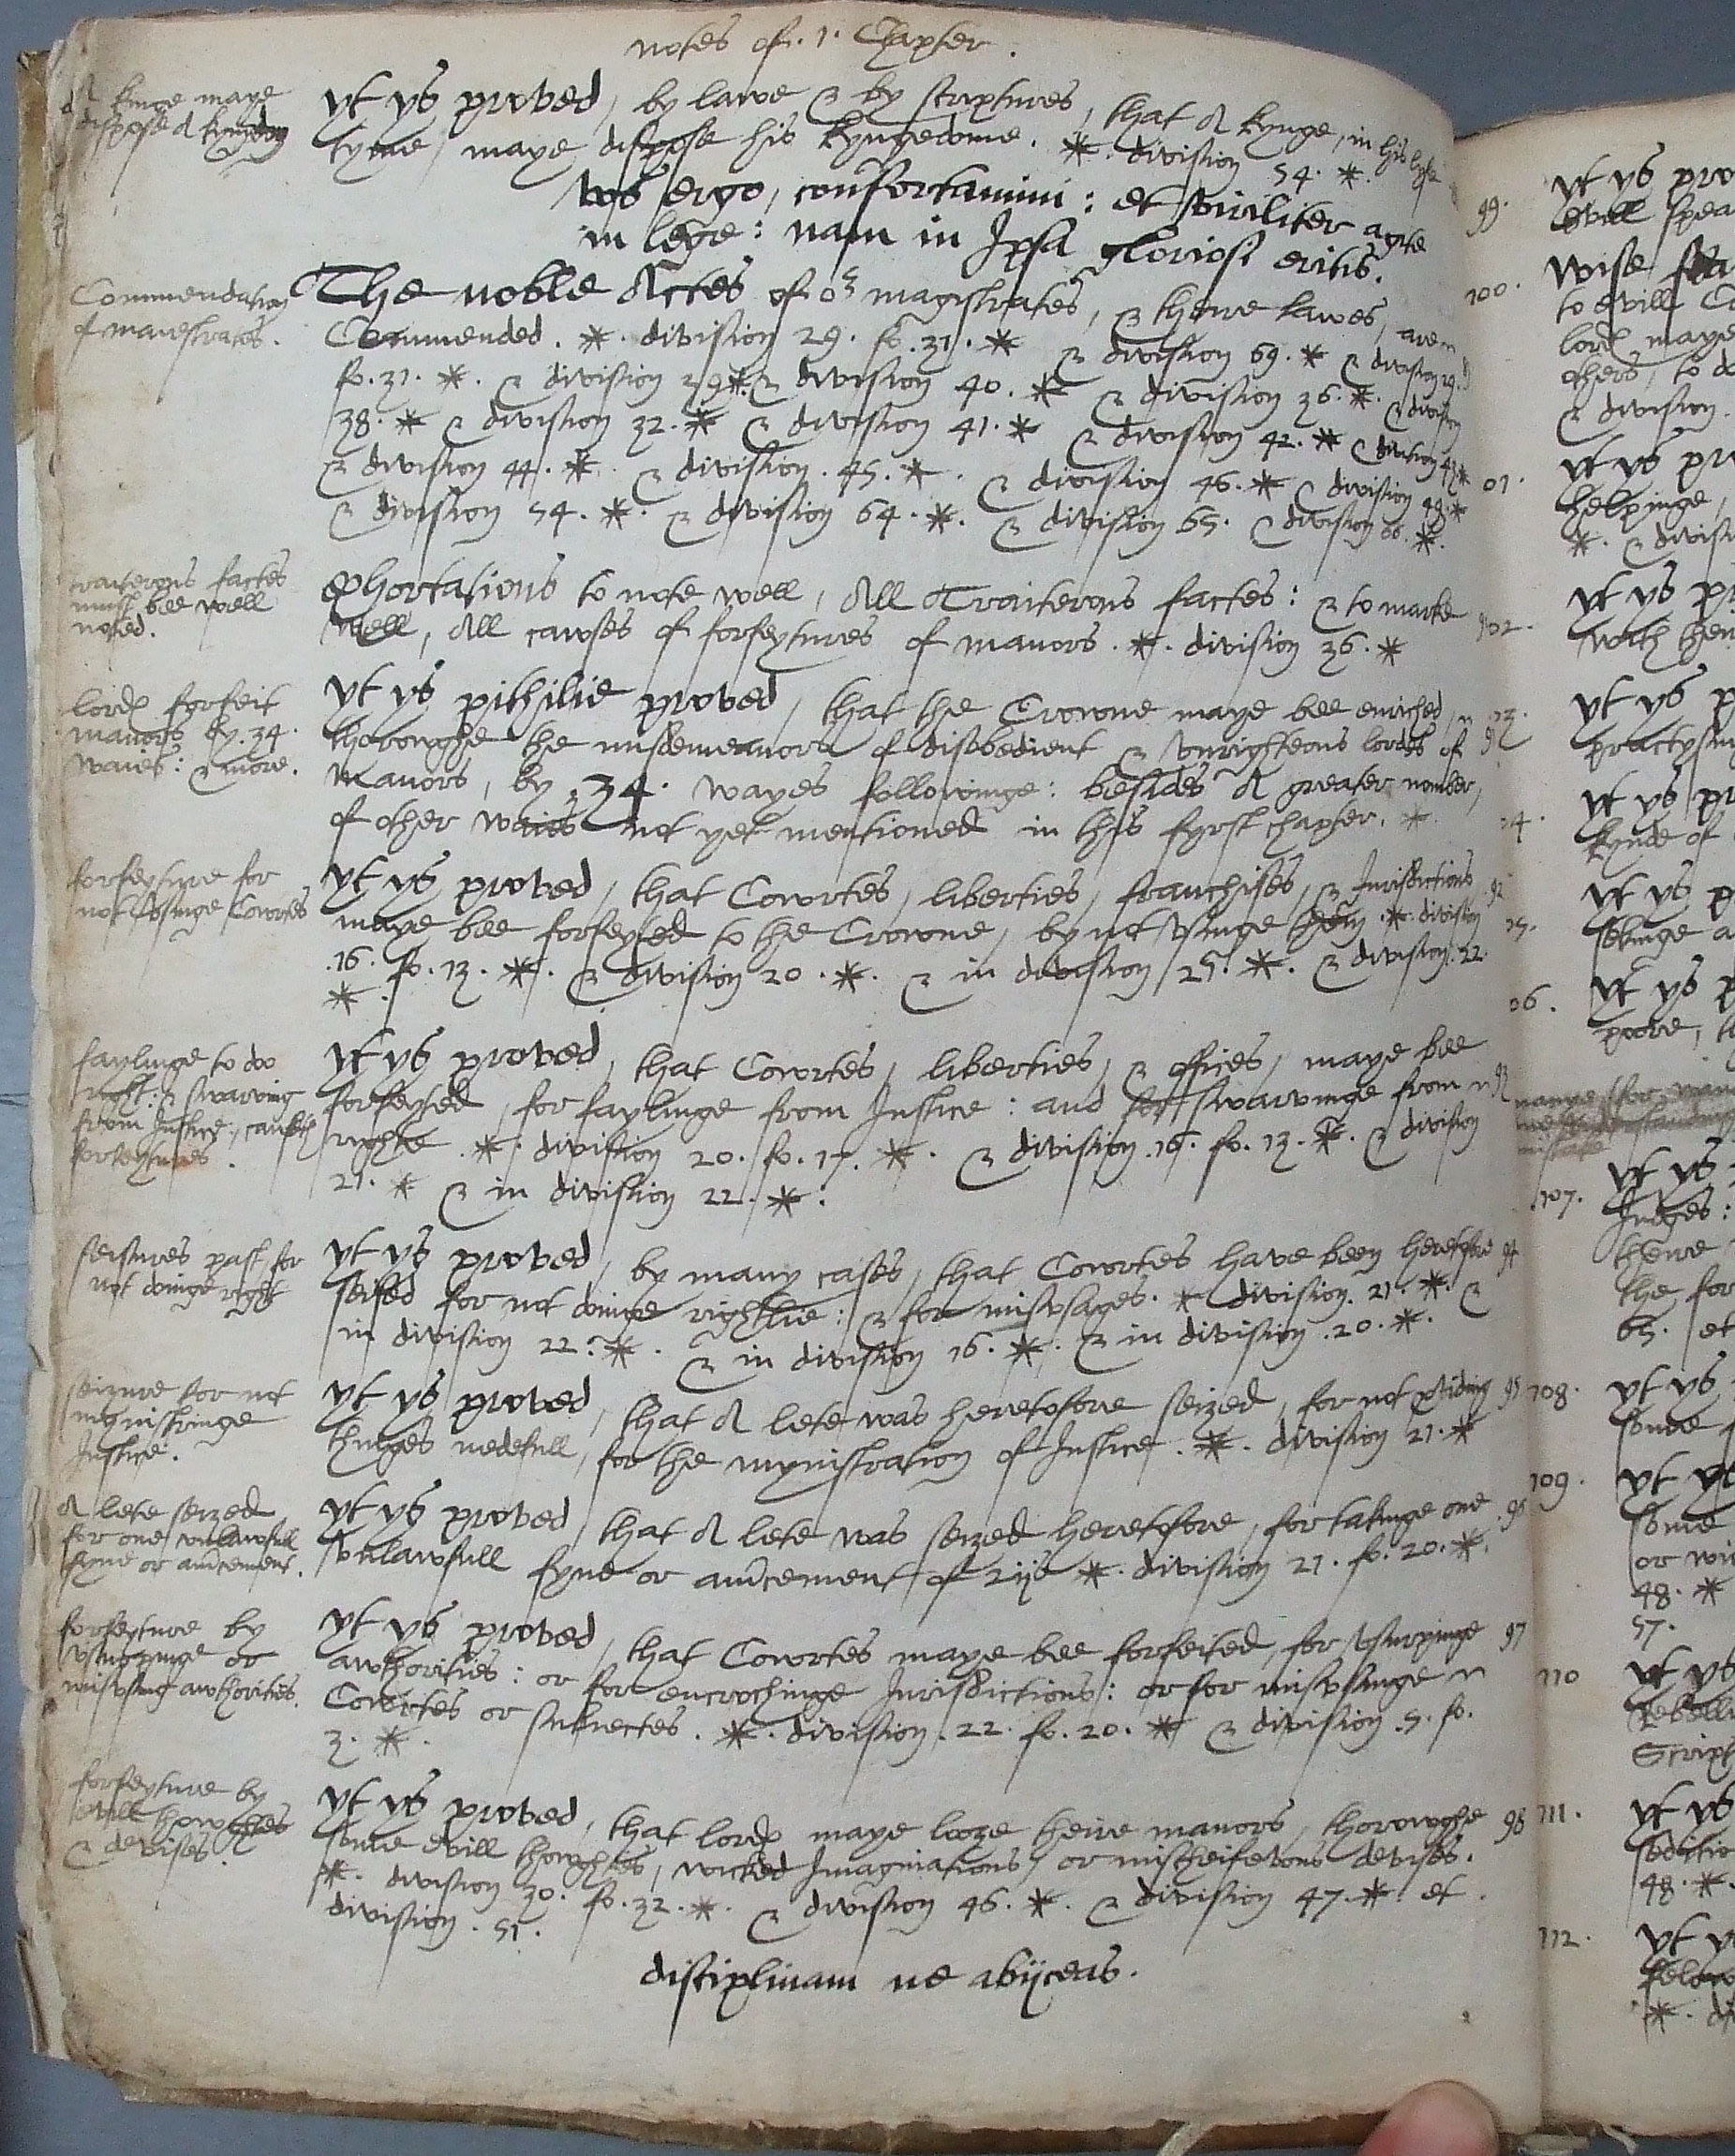 notes of .1. Chapter.
A kinge maye
dispose A kingdom
yt ys proved, by lawe & by scriptures, that A kynge, in his lyfe
tyme, maye dispose his kyngedome. *. division 54. *.
vos ergo, confortamini: et viriliter agite
in lege: nam in Ipsa gloriosi eritis.
Commendation
of maiestrates.
The noble Actes of or magistrates, & theire lawes, are
Commended. *. division 29. fo. 31. * & division 69. * & division 29.
fo. 31. *. & division 39 * & division 40. * & division 36. *. & division
38. * & division 32. * & division 41. * & division 42. * & division 43 *
& division 44. *. & division. 45. *. & division 46. * & division 49. *
& division 54. *. & division 64. *. & division 65. & division 66. *.
traiterous factes
must bee well
noted.
Exhortations to note well, All Traiterous factes: & to marke
well, All cawses of forfeytures of manors. *. division 36. *
lordes forfeit
manors by .34.
waies: & more.
yt ys pithilie proved, that the Crowne maye bee enriched,
thoroughe the misdemeanors of disobedient & vnrighteous lordes of
manors, by .34. wayes followinge: besides A greater nomber,
of other waies not yet mentioned in this fyrst chapter. *
forfeyture for
not vsinge Cowrtes
yt ys proved, that Cowrtes, liberties, franchises, & Iurisdictions 92
maye bee forfeyted to the Crowne, by not vsinge them. *. division
.16. fo. 13. *. & division 20. *. & in division 25. *. & division. 22.
*.
faylinge to doo
right: & swarving
from Iustice, causeth
forfeytures.
yt ys proved, that Cowrtes, liberties, & offices, maye bee
forfeyted, for faylinge from Iustice: and for swarvinge from 93
righte. *. division 20. fo. 17. *. & division .16. fo. 13. *. & division
21. * & in division 22. *.
seisures past for
not doinge right
yt ys proved, by many cases, that Cowrtes have been heretofore 94
seised for not doinge rightlie: & for misvsages. * division. 21. *. &
in division 22. *. & in division 16. *. & in division .20. *.
seizure for not
mynistringe
Iustice.
yt ys proved, that A lete was heretofore seized, for not providing 95
thinges nedefull, for the mynistration of Iustice. *. division 21. *
A lete seized
for one vnlawfull
fyne or amercement.
yt ys proved, that A lete was seized heretofore, for takinge one .96
vnlawfull fyne or amercement of *. division 21. fo. 20. *.
forfeyture by
vsurpinge or
misvsing awthorities.
yt ys proved, that Cowrtes maye bee forfeited, for vsurpinge 97
awthorities: or for encrochinge Iurisdictions: or for misvsinge
Cowrtes or subiectes. *. division .22. fo. 20. * & division .5. fo.
3. *.
forfeyture by
evill thowghtes
& devises.
yt ys proved, that lordes maye looze theire manors, thoroughe 98
some evill thowghtes, wicked Imaginations, or mischeifevous devises.
*. division 30. fo. 32. *. & division 46. *. & division 47. * et.
division. 51.
disciplinam ne abijceas.
99. yt ys pro
evill spea
100. wise
to evill
lordes maye
others, to do
& division.
01. yt ys pro
helpinge,
*. & divisi
102. yt ys pr
with then
03. yt ys p
practysin
04. yt ys pr
kynde of
05. yt ys p
sekinge a
06. yt ys p
poore, t
.107. yt ys
Iudges:
theire
the for
65. et
108. yt ys
some
109. yt ys
some
or wi
48. *
57.
110 yt ys
Rebelli
Script
111. yt ys
seditio
48. *.
112. yt y
*. di